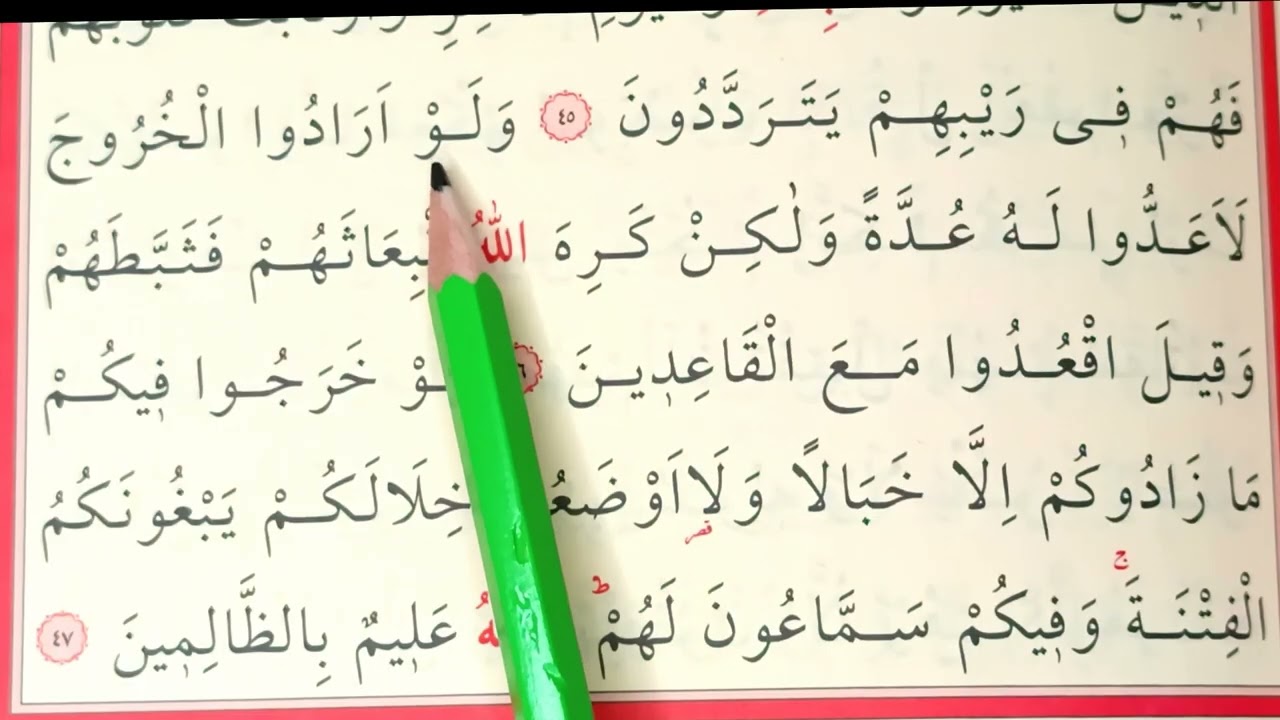 فَهُمْ فِى رَيْبِهِمْ يَتَرَدَّدُونَ ٤٥ وَلَوْ اَرَادُوا الْخُرُوجَ
لَاَعَدُّوا لَهُ عُدَّةً وَلٰكِنْ كَرِهَ اللّٰهُ فَثَبَّطَهُمْ
وَقِيلَ اقْعُدُوا مَعَ الْقَاعِدِينَ خَرَجُوا فِيكُمْ
مَا زَادُوكُمْ اِلَّا خَبَالًا خِلَالَكُمْ يَبْغُونَكُمُ
الْفِتْنَةَ ج وَفِيكُمْ سَمَّاعُونَ لَهُمْ ط عَلِيمٌ بِالظَّالِمِينَ ٤٧